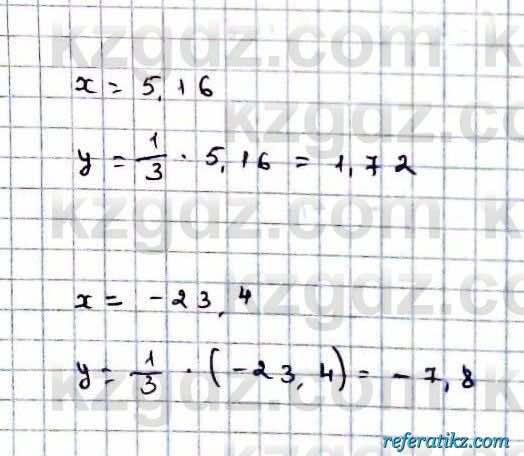 kzgdz.com
x = 5,16
y = 1/3 · 5,16 = 1,72
kzgdz.com
x = -23,4
kzgdz.com
y = 1/3 · (-23,4) = -7,8
referatikz.com